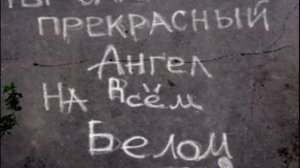 ПРЕКРАСНЫЙ
Ангел
НА всём
Белом